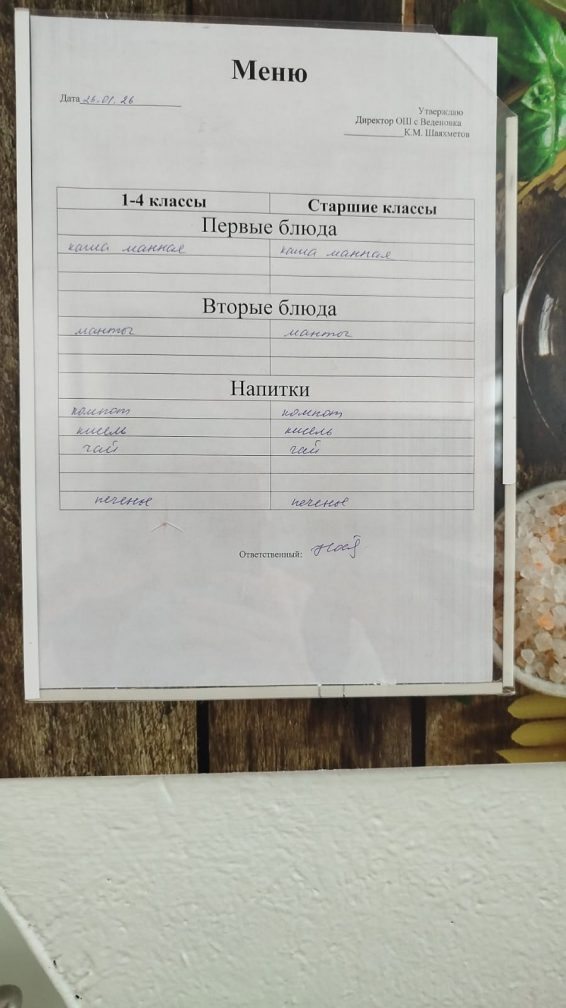 Меню
Дата 26.01.26
Утверждаю
Директор ОШ с Веденовка
К.М. Шаяхметов
1-4 классы Старшие классы
Первые блюда
каша манная каша манная
Вторые блюда
манты манты
Напитки
компот компот
кисель кисель
чай чай
печенье печенье
Ответственный: